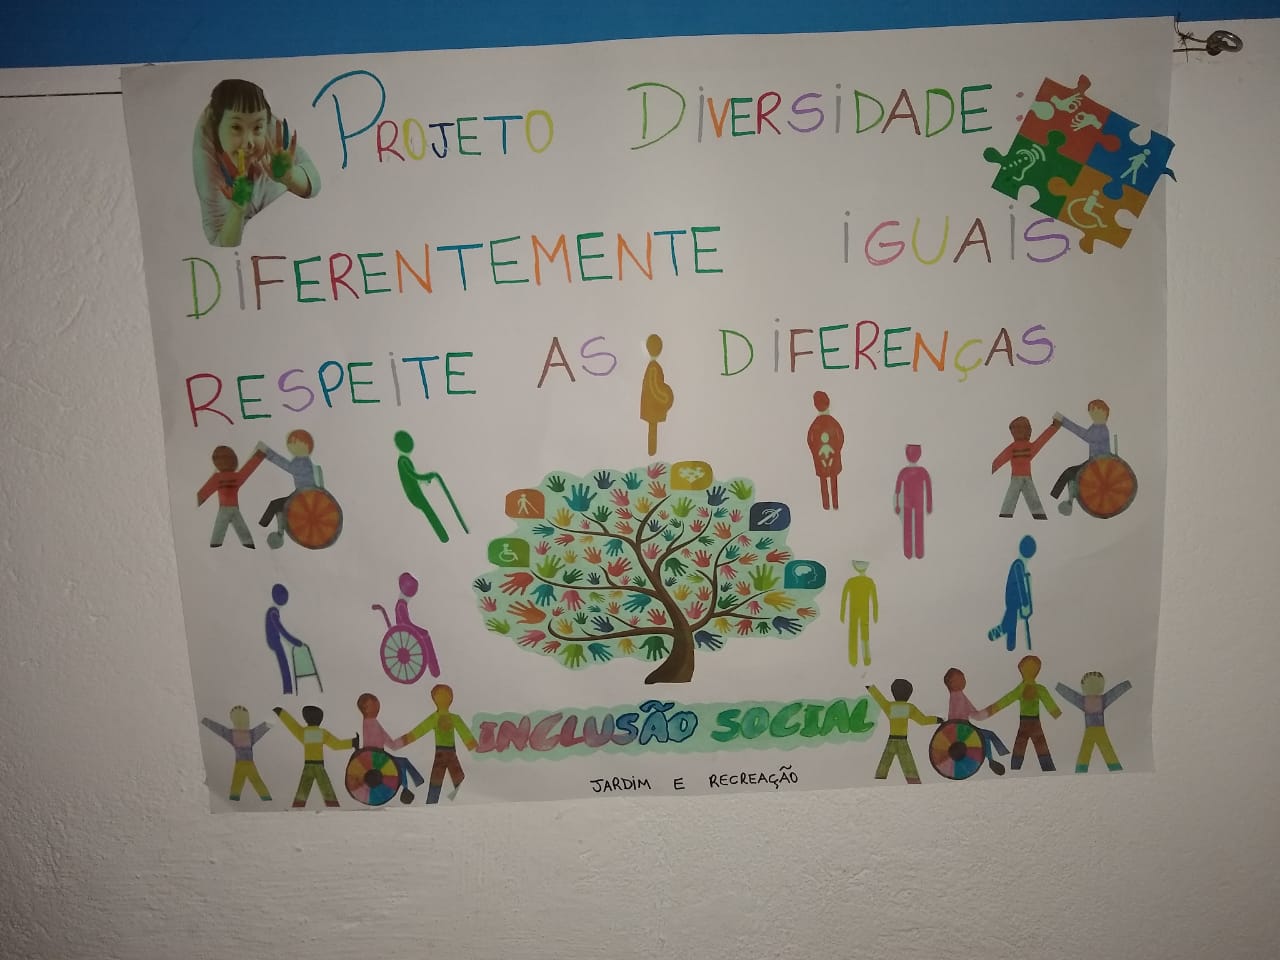 PROJETO DIVERSIDADE:
DIFERENTEMENTE IGUAIS
RESPEITE AS DIFERENÇAS
INCLUSÃO SOCIAL
JARDIM E RECREAÇÃO